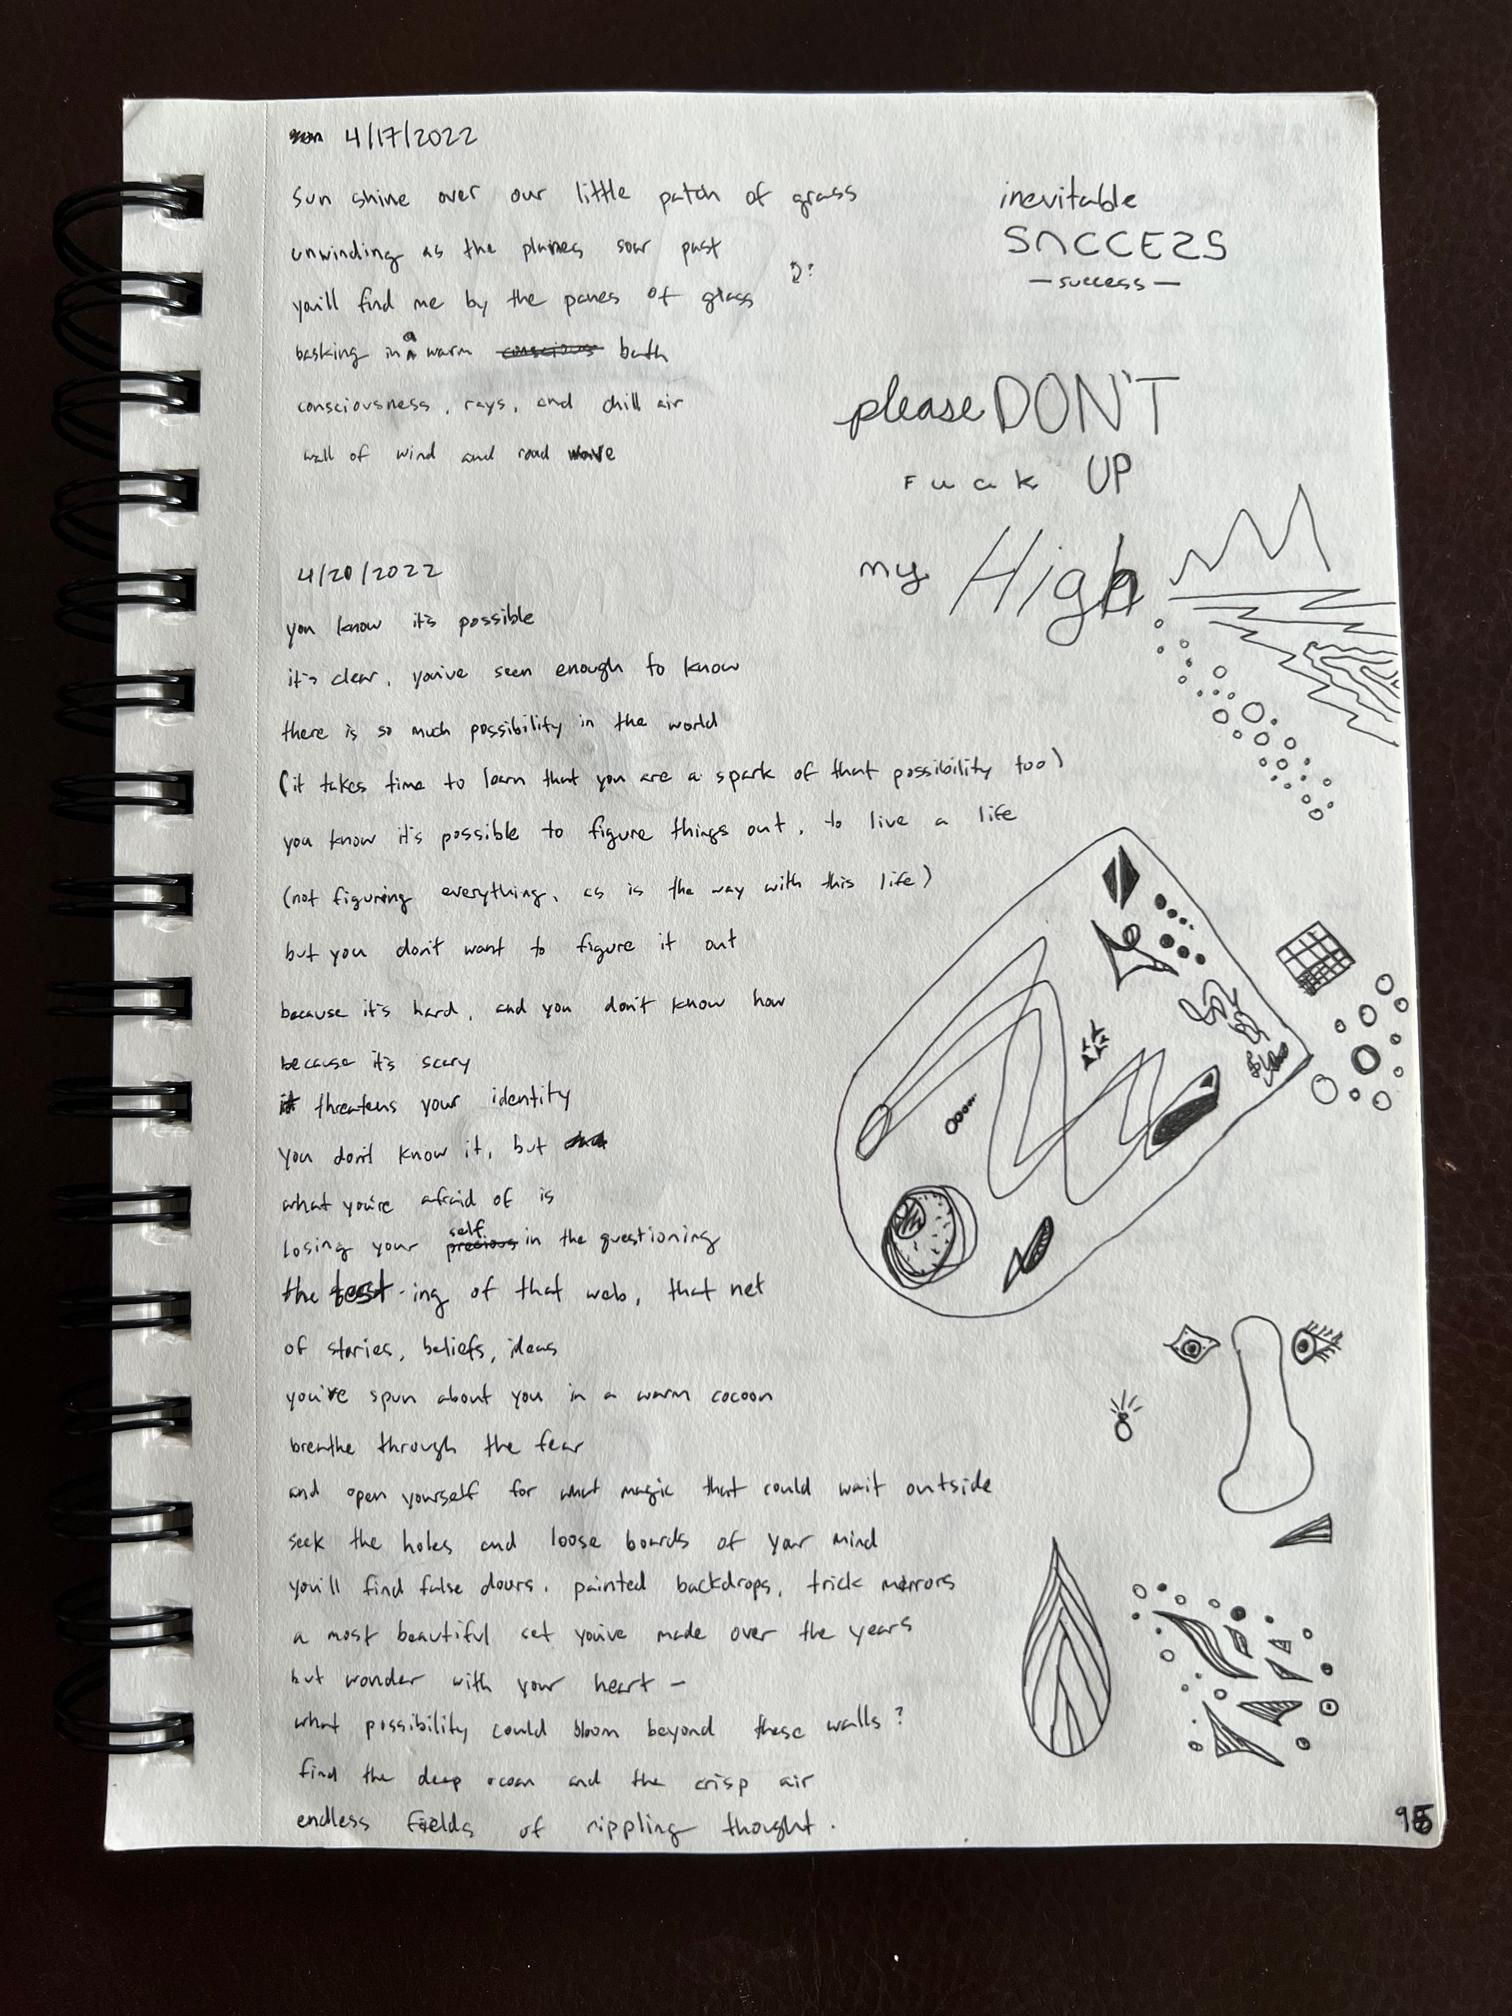 4/17/2022
sun shine over our little patch of grass
unwinding as the planes soar past
you'll find me by the panes of glass
basking in a warm conscious bath
consciousness, rays, and chill air
wall of wind and road wave
inevitable
SUCCESS
— success —
please DON'T
Fuck UP
my High
4/20/2022
you know it's possible
it's clear, you've seen enough to know
there is so much possibility in the world
(it takes time to learn that you are a spark of that possibility too)
you know it's possible to figure things out, to live a life
(not figuring everything, as is the way with this life)
but you don't want to figure it out
because it's hard, and you don't know how
because it's scary
it threatens your identity
you don't know it, but
what you're afraid of is
losing your precious self in the questioning
the test-ing of that web, that net
of stories, beliefs, ideas
you've spun about you in a warm cocoon
breathe through the fear
and open yourself for what magic that could wait outside
seek the holes and loose boards of your mind
you'll find false doors, painted backdrops, trick mirrors
a most beautiful set you've made over the years
but wonder with your heart —
what possibility could bloom beyond these walls?
find the deep ocean and the crisp air
endless fields of rippling thought.